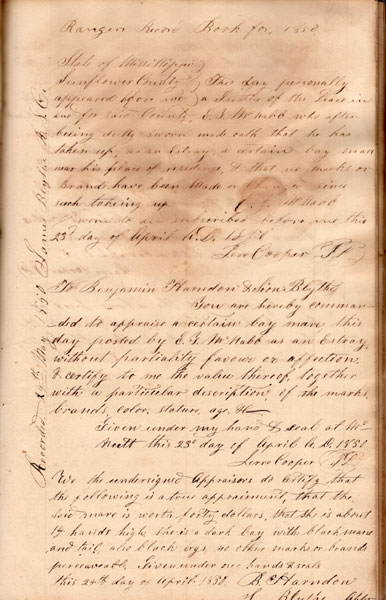 Rangers Record Book for, 1850
State of Mississippi
Sunflower County } This day personally
appeared before me } a Justice of the Peace in
and for said County, E. G. McNabb who after
being duly sworn made oath that he has
taken up as an Estray a certain bay mare
near his place of residence, & that no marks or
Brands have been made or since
such takeing up E. G. McNabb
Sworn to an subscribed before me this
23d day of April A.D. 1850
Cooper J P
To Benjamin Harndon & Sion Blythe
You are hereby comman
ded to appraise a certain bay mare this
day posted by E. G. McNabb as an Estray,
without partiality favour or affection
& certify to me the value thereof, together
with a particular description of the marks,
brands, color, stature, age &c
Given under my hand & seal at Mc
Nutt this 23d day of April A. D. 1850
Cooper J P
We the undersigned Appraisors do certify that
the following is a true appraisment, that the
said mare is worth forty dollars, that she is about
14 hands high, she is a dark bay with black mane
and tail, also black legs, no other marks or brands
perceavable. Given under our hands & seals
this 24th day of April 1850. B. Harndon
S. Blythe Appr
Recorded May 1850 Blythe R. S. C.